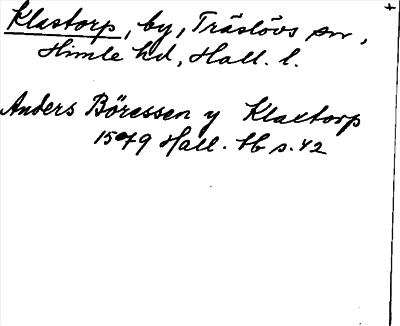 Klastorp, by, Träslövs sn,
Himle hd, Hall. l.
Anders Böressen y Klaxtorp
1579 Hall. Hb s. 42